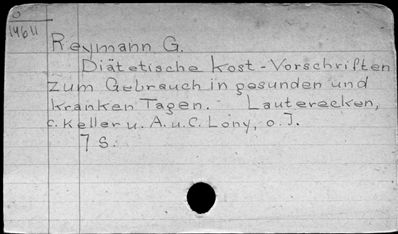 0
14611
Reymann G.
Diätetische Kost-Vorschriften
zum Gebrauch in gesunden und
kranken Tagen. Lauterecken,
C. Keller u. A. u. C. Lony, o. J.
7 S.